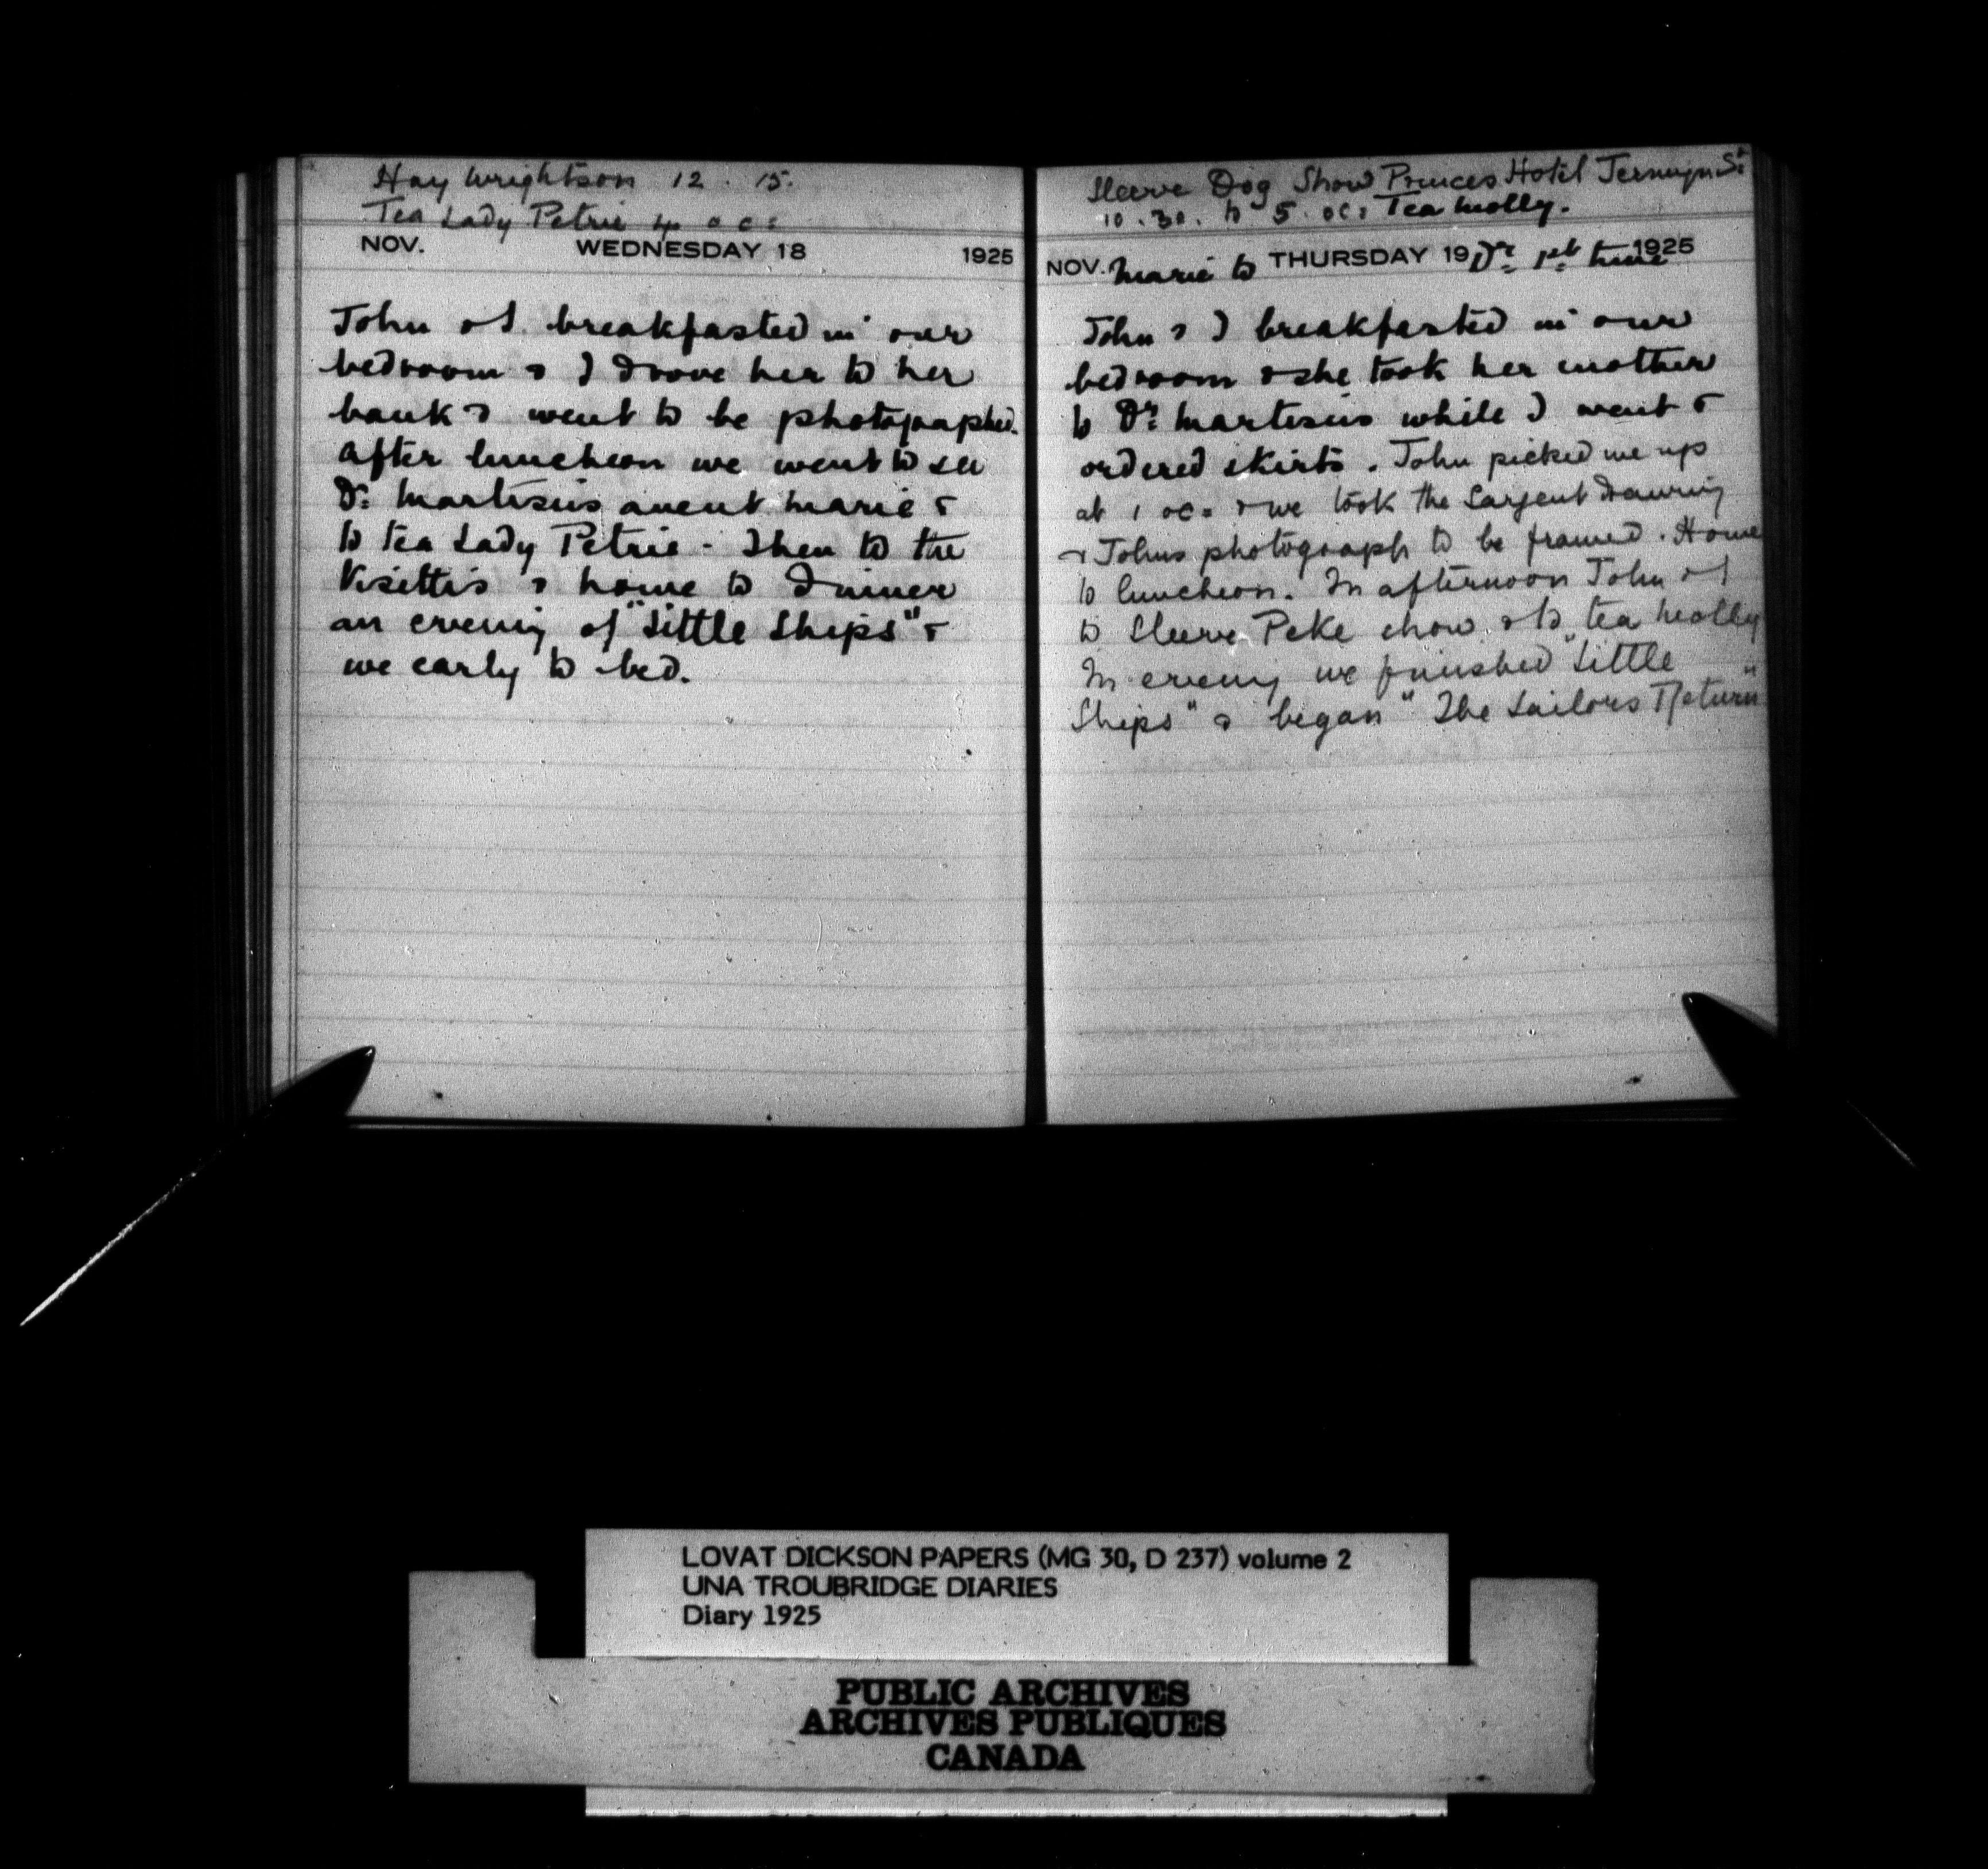 Hay Wrightson 12.15.
Tea Lady Petrie 4 oc:
NOV. WEDNESDAY 18 1925
John & I breakfasted in our
bedroom & I drove her to her
bank & went to be photographed.
After luncheon we went to see
Dr: Martisius anent Marie &
to tea Lady Petrie - Then to the
Visettis & home to dinner
an evening of "Little Ships" &
we early to bed.
Sleeve Dog Show Princes Hotel Jermyn St:
10.30. to 5. oc: Tea Molly.
NOV. THURSDAY 19 1925
Marie to Dr: 1st time
John & I breakfasted in our
bedroom & she took her mother
to Dr: Martisius while I went &
ordered skirts. John picked me up
at 1 oc= & we took the Sargent drawing
& Johns photograph to be framed. Home
to luncheon. In afternoon John & I
to Sleeve Peke show & to tea Molly
In evening we finished "Little
Ships" & began "The Sailors Return"
LOVAT DICKSON PAPERS (MG 30, D 237) volume 2
UNA TROUBRIDGE DIARIES
Diary 1925
PUBLIC ARCHIVES
ARCHIVES PUBLIQUES
CANADA